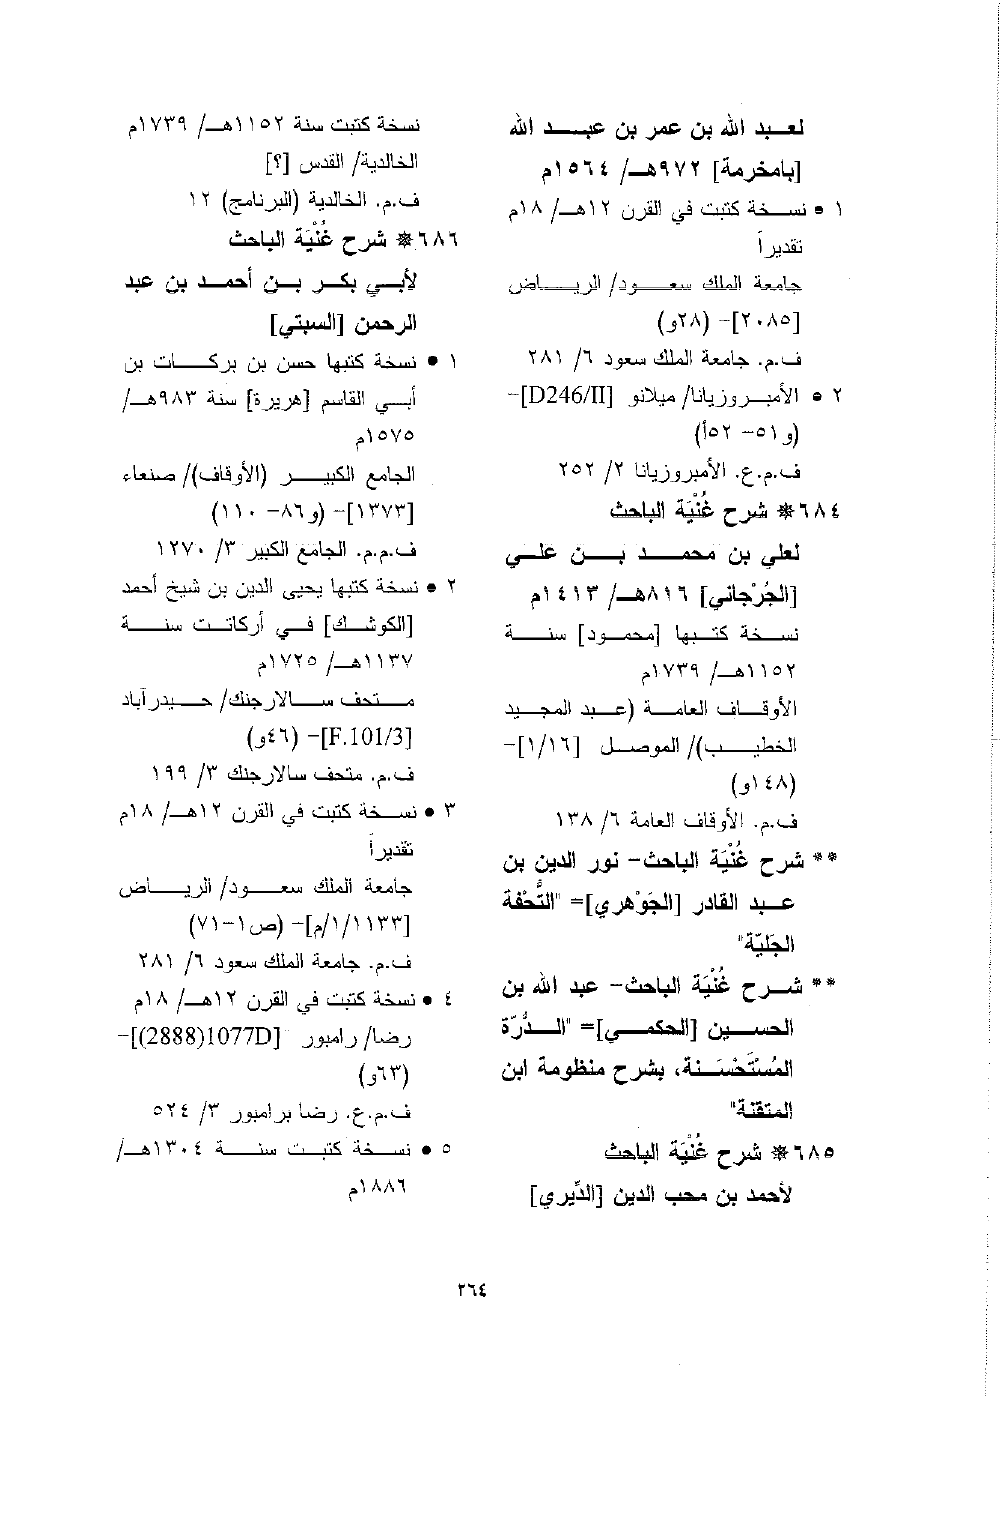 لعبد الله بن عمر بن عبد الله
[بامخرمة] ٩٧٢هـ/ ١٥٦٤م
١ • نسخة كتبت في القرن ١٢هـ/ ١٨م
تقديراً
جامعة الملك سعود/ الرياض
[٢٠٨٥]- (٢٨و)
ف.م. جامعة الملك سعود ٦/ ٢٨١
٢ • الأمبروزيانا/ ميلانو [D246/II]-
(و٥١- ٥٢أ)
ف.م.ع. الأمبروزيانا ٢/ ٢٥٢
٦٨٤* شرح غُنْيَة الباحث
لعلي بن محمد بن علي
[الجُرْجاني] ٨١٦هـ/ ١٤١٣م
نسخة كتبها [محمود] سنة
١١٥٢هـ/ ١٧٣٩م
الأوقاف العامة (عبد المجيد
الخطيب)/ الموصل [١/١٦]-
(١٤٨و)
ف.م. الأوقاف العامة ٦/ ١٣٨
** شرح غُنْيَة الباحث- نور الدين بن
عبد القادر [الجَوْهري]= "التُّحْفة
الجَليّة"
** شرح غُنْيَة الباحث- عبد الله بن
الحسين [الحكمي]= "الدُّرّة
المُسْتَحْسَنة، بشرح منظومة ابن
المتقنة"
٦٨٥* شرح غُنْيَة الباحث
لأحمد بن محب الدين [الدِّيري]
نسخة كتبت سنة ١١٥٢هـ/ ١٧٣٩م
الخالدية/ القدس [؟]
ف.م. الخالدية (البرنامج) ١٢
٦٨٦* شرح غُنْيَة الباحث
لأبي بكر بن أحمد بن عبد
الرحمن [السبتي]
١ • نسخة كتبها حسن بن بركات بن
أبي القاسم [هريرة] سنة ٩٨٣هـ/
١٥٧٥م
الجامع الكبير (الأوقاف)/ صنعاء
[١٣٧٣]- (و٨٦- ١١٠)
ف.م.م. الجامع الكبير ٣/ ١٢٧٠
٢ • نسخة كتبها يحيى الدين بن شيخ أحمد
[الكوشك] في أركات سنة
١١٣٧هـ/ ١٧٢٥م
متحف سالارجنك/ حيدرآباد
[F.101/3]- (٤٦و)
ف.م. متحف سالارجنك ٣/ ١٩٩
٣ • نسخة كتبت في القرن ١٢هـ/ ١٨م
تقديراً
جامعة الملك سعود/ الرياض
[١١٣٣/١/م]- (ص١-٧١)
ف.م. جامعة الملك سعود ٦/ ٢٨١
٤ • نسخة كتبت في القرن ١٢هـ/ ١٨م
رضا/ رامبور [1077D(2888)]-
(٦٣و)
ف.م.ع. رضا برامبور ٣/ ٥٢٤
٥ • نسخة كتبت سنة ١٣٠٤هـ/
١٨٨٦م
٢٦٤